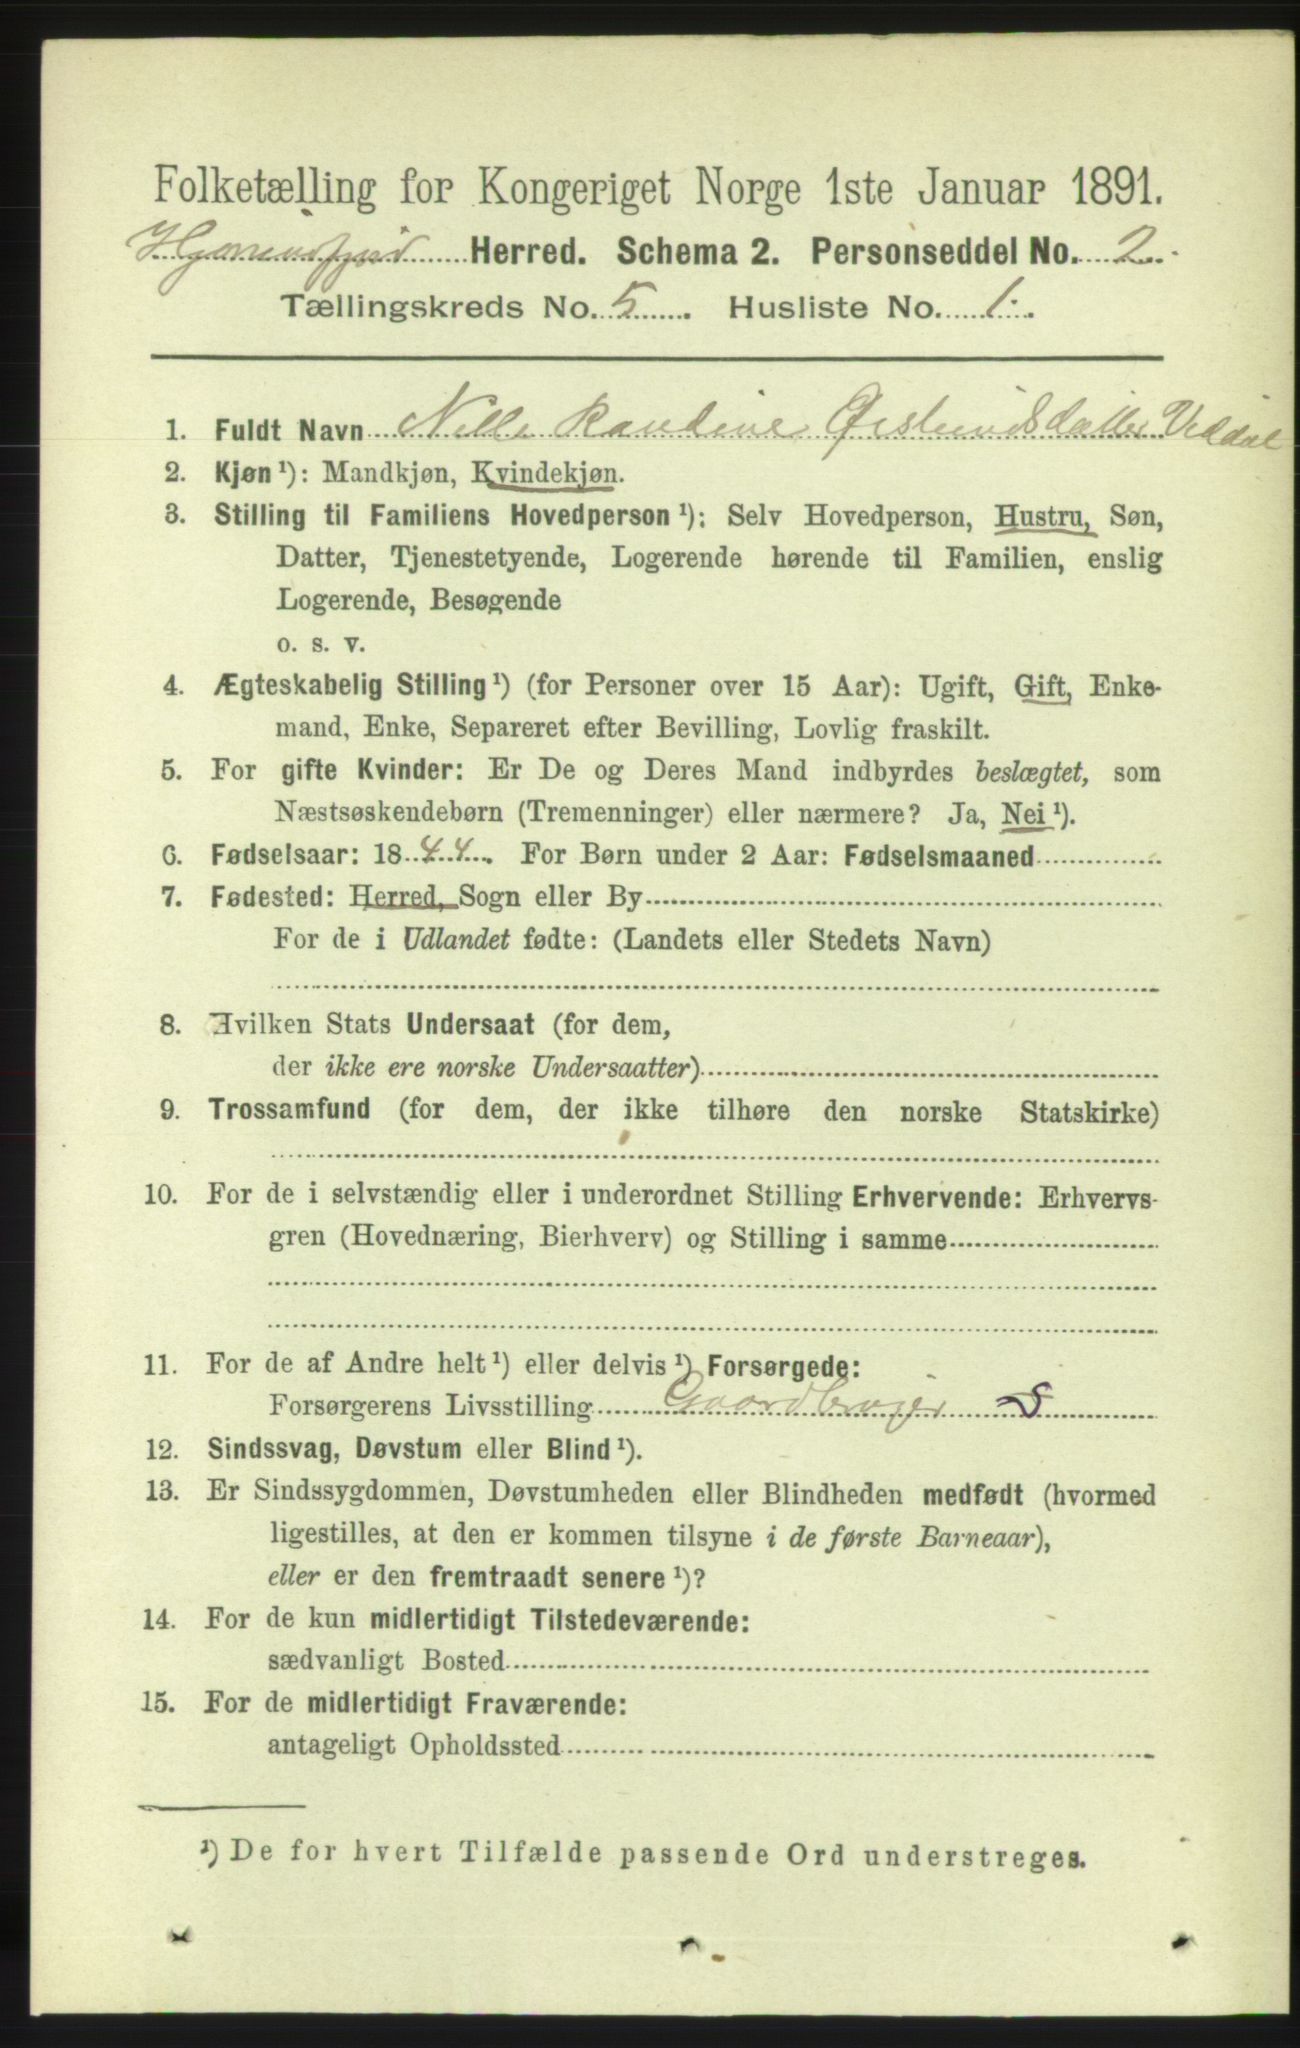 Folketælling for Kongeriget Norge 1ste Januar 1891.
Hjørundfjord Herred. Schema 2. Personseddel No. 2.
Tællingskreds No. 5. Husliste No. 1.
1. Fuldt Navn Nille Randine Østensdatter Viddal
2. Kjøn ¹): Mandkjøn, Kvindekjøn.
3. Stilling til Familiens Hovedperson ¹): Selv Hovedperson, Hustru, Søn,
Datter, Tjenestetyende, Logerende hørende til Familien, enslig
Logerende, Besøgende
o. s. v.
4. Ægteskabelig Stilling ¹) (for Personer over 15 Aar): Ugift, Gift, Enke-
mand, Enke, Separeret efter Bevilling, Lovlig fraskilt.
5. For gifte Kvinder: Er De og Deres Mand indbyrdes beslægtet, som
Næstsøskendebørn (Tremenninger) eller nærmere? Ja, Nei ¹).
6. Fødselsaar: 1844. For Børn under 2 Aar: Fødselsmaaned
7. Fødested: Herred, Sogn eller By
For de i Udlandet fødte: (Landets eller Stedets Navn)
8. Hvilken Stats Undersaat (for dem,
der ikke ere norske Undersaatter)
9. Trossamfund (for dem, der ikke tilhøre den norske Statskirke)
10. For de i selvstændig eller i underordnet Stilling Erhvervende: Erhvervs-
gren (Hovednæring, Bierhverv) og Stilling i samme
11. For de af Andre helt ¹) eller delvis ¹) Forsørgede:
Forsørgerens Livsstilling Gaardbruger S
12. Sindssvag, Døvstum eller Blind ¹).
13. Er Sindssygdommen, Døvstumheden eller Blindheden medfødt (hvormed
ligestilles, at den er kommen tilsyne i de første Barneaar),
eller er den fremtraadt senere ¹)?
14. For de kun midlertidigt Tilstedeværende:
sædvanligt Bosted
15. For de midlertidigt Fraværende:
antageligt Opholdssted
¹) De for hvert Tilfælde passende Ord understreges.